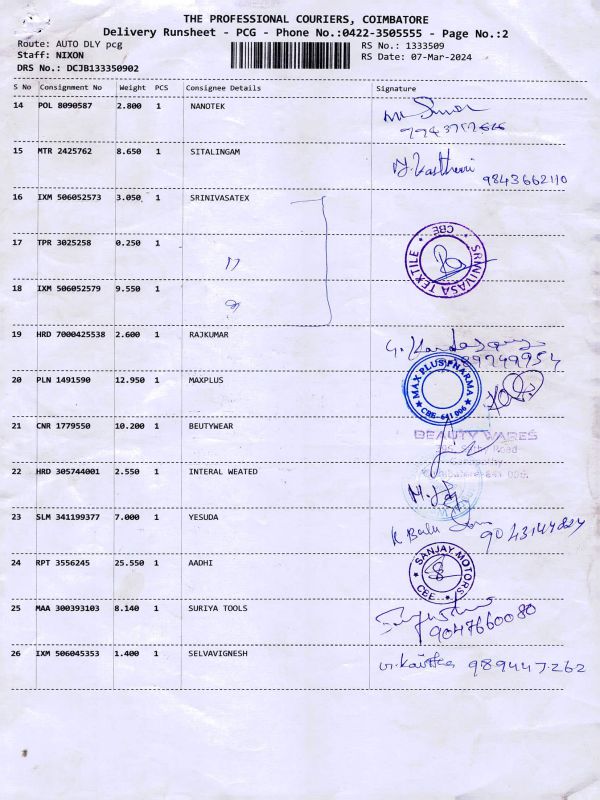 THE PROFESSIONAL COURIERS, COIMBATORE
Delivery Runsheet - PCG - Phone No.:0422-3505555 - Page No.:2
Route: AUTO DLY pcg
RS No.: 1333509
Staff: NIXON
RS Date: 07-Mar-2024
DRS No.: DCJB133350902
S No Consignment No Weight PCS Consignee Details Signature
14 POL 8090587 2.800 1 NANOTEK
15 MTR 2425762 8.650 1 SITALINGAM
9843662110
16 IXM 506052573 3.050 1 SRINIVASATEX
17 TPR 3025258 0.250 1 "
SRINIVASA TEXTILE * CBE *
18 IXM 506052579 9.550 1 "
19 HRD 7000425538 2.600 1 RAJKUMAR
20 PLN 1491590 12.950 1 MAXPLUS
MAX PLUS PHARMA * CBE-641 006 *
21 CNR 1779550 10.200 1 BEUTYWEAR
BEAUTY WARES
Road
22 HRD 305744001 2.550 1 INTERAL WEATED
23 SLM 341199377 7.000 1 YESUDA
24 RPT 3556245 25.550 1 AADHI
SANJAY MOTORS * CBE *
25 MAA 300393103 8.140 1 SURIYA TOOLS
9047660080
26 IXM 506045353 1.400 1 SELVAVIGNESH
989447262